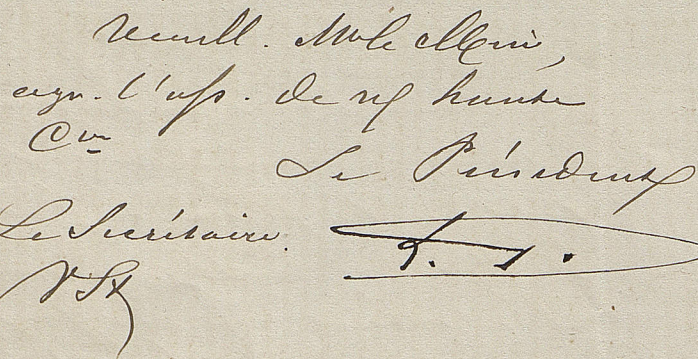 Veuill. Mr le Min,
agr. l'ass. de n/ haute
Con
Le Président
Le Secrétaire.